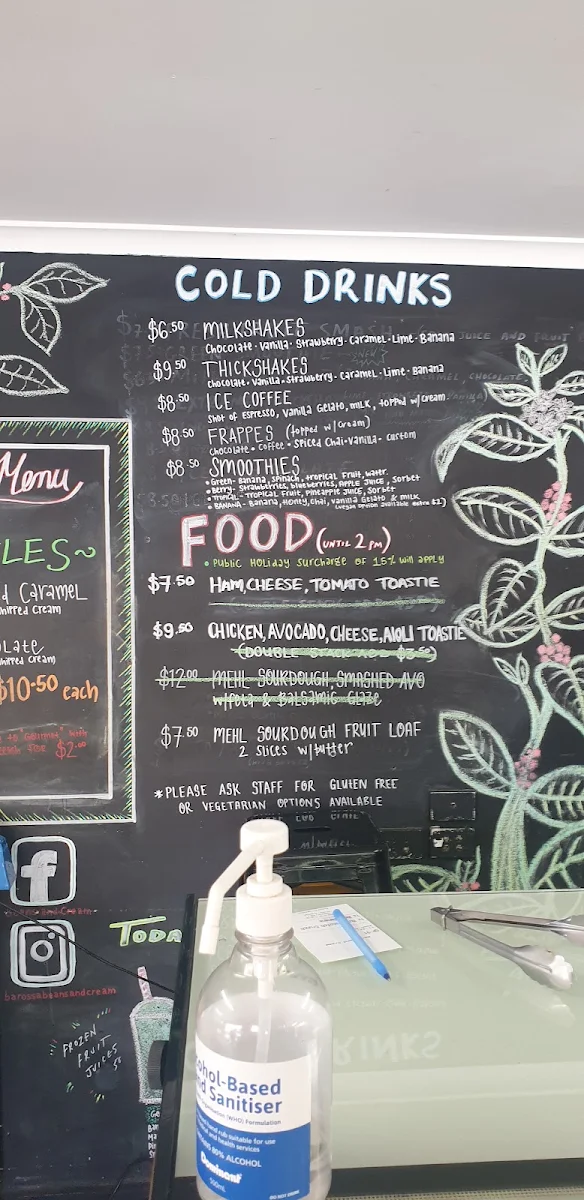 COLD DRINKS
$6.50 MILKSHAKES
Chocolate · Vanilla · Strawberry · Caramel · Lime · Banana
$9.50 THICKSHAKES
Chocolate · Vanilla · Strawberry · Caramel · Lime · Banana
$8.50 ICE COFFEE
Shot of Espresso, Vanilla Gelato, Milk, topped w/cream
$8.50 FRAPPES (topped w/cream)
Chocolate · Coffee · Spiced Chai · Vanilla · Custom
$8.50 SMOOTHIES
• Green - Banana, Spinach, Tropical Fruit, Water.
• Berry - Strawberries, blueberries, APPLE JUICE, Sorbet
• Tropical - Tropical Fruit, Pineapple Juice, Sorbet
• BANANA - Banana, Honey, Chai, Vanilla Gelato & Milk
(vegan option available extra $2)
FOOD (UNTIL 2PM)
• Public Holiday Surcharge of 15% will apply
$7.50 HAM, CHEESE, TOMATO TOASTIE
$9.50 CHICKEN, AVOCADO, CHEESE, AIOLI TOASTIE
(DOUBLE STACK ADD $3.50)
$12.00 MEHL SOURDOUGH, SMASHED AVO
w/feta & Balsamic Glaze
$7.50 MEHL SOURDOUGH FRUIT LOAF
2 slices w/butter
*PLEASE ASK STAFF FOR GLUTEN FREE
OR VEGETARIAN OPTIONS AVAILABLE
JUICE AND FRUIT
Menu
LES~
d Caramel
hipped Cream
olate
hipped cream
$10.50 each
$2.00
f
Beans and Cream
barossabeansandcream
TODA
FROZEN
FRUIT
JUICES
cohol-Based
nd Sanitiser
(WHO) Formulation
hand rub suitable for use
and health services
80% ALCOHOL
Dominant
500mL
DRINKS